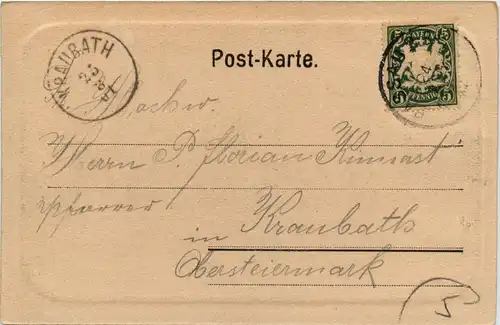 KRAUBATH
Post-Karte.
BAYERN
5 5
PFENNIG
Hochw.
Herrn P. Florian Kinnast
Pfarrer
in Kraubath
Obersteiermark
5